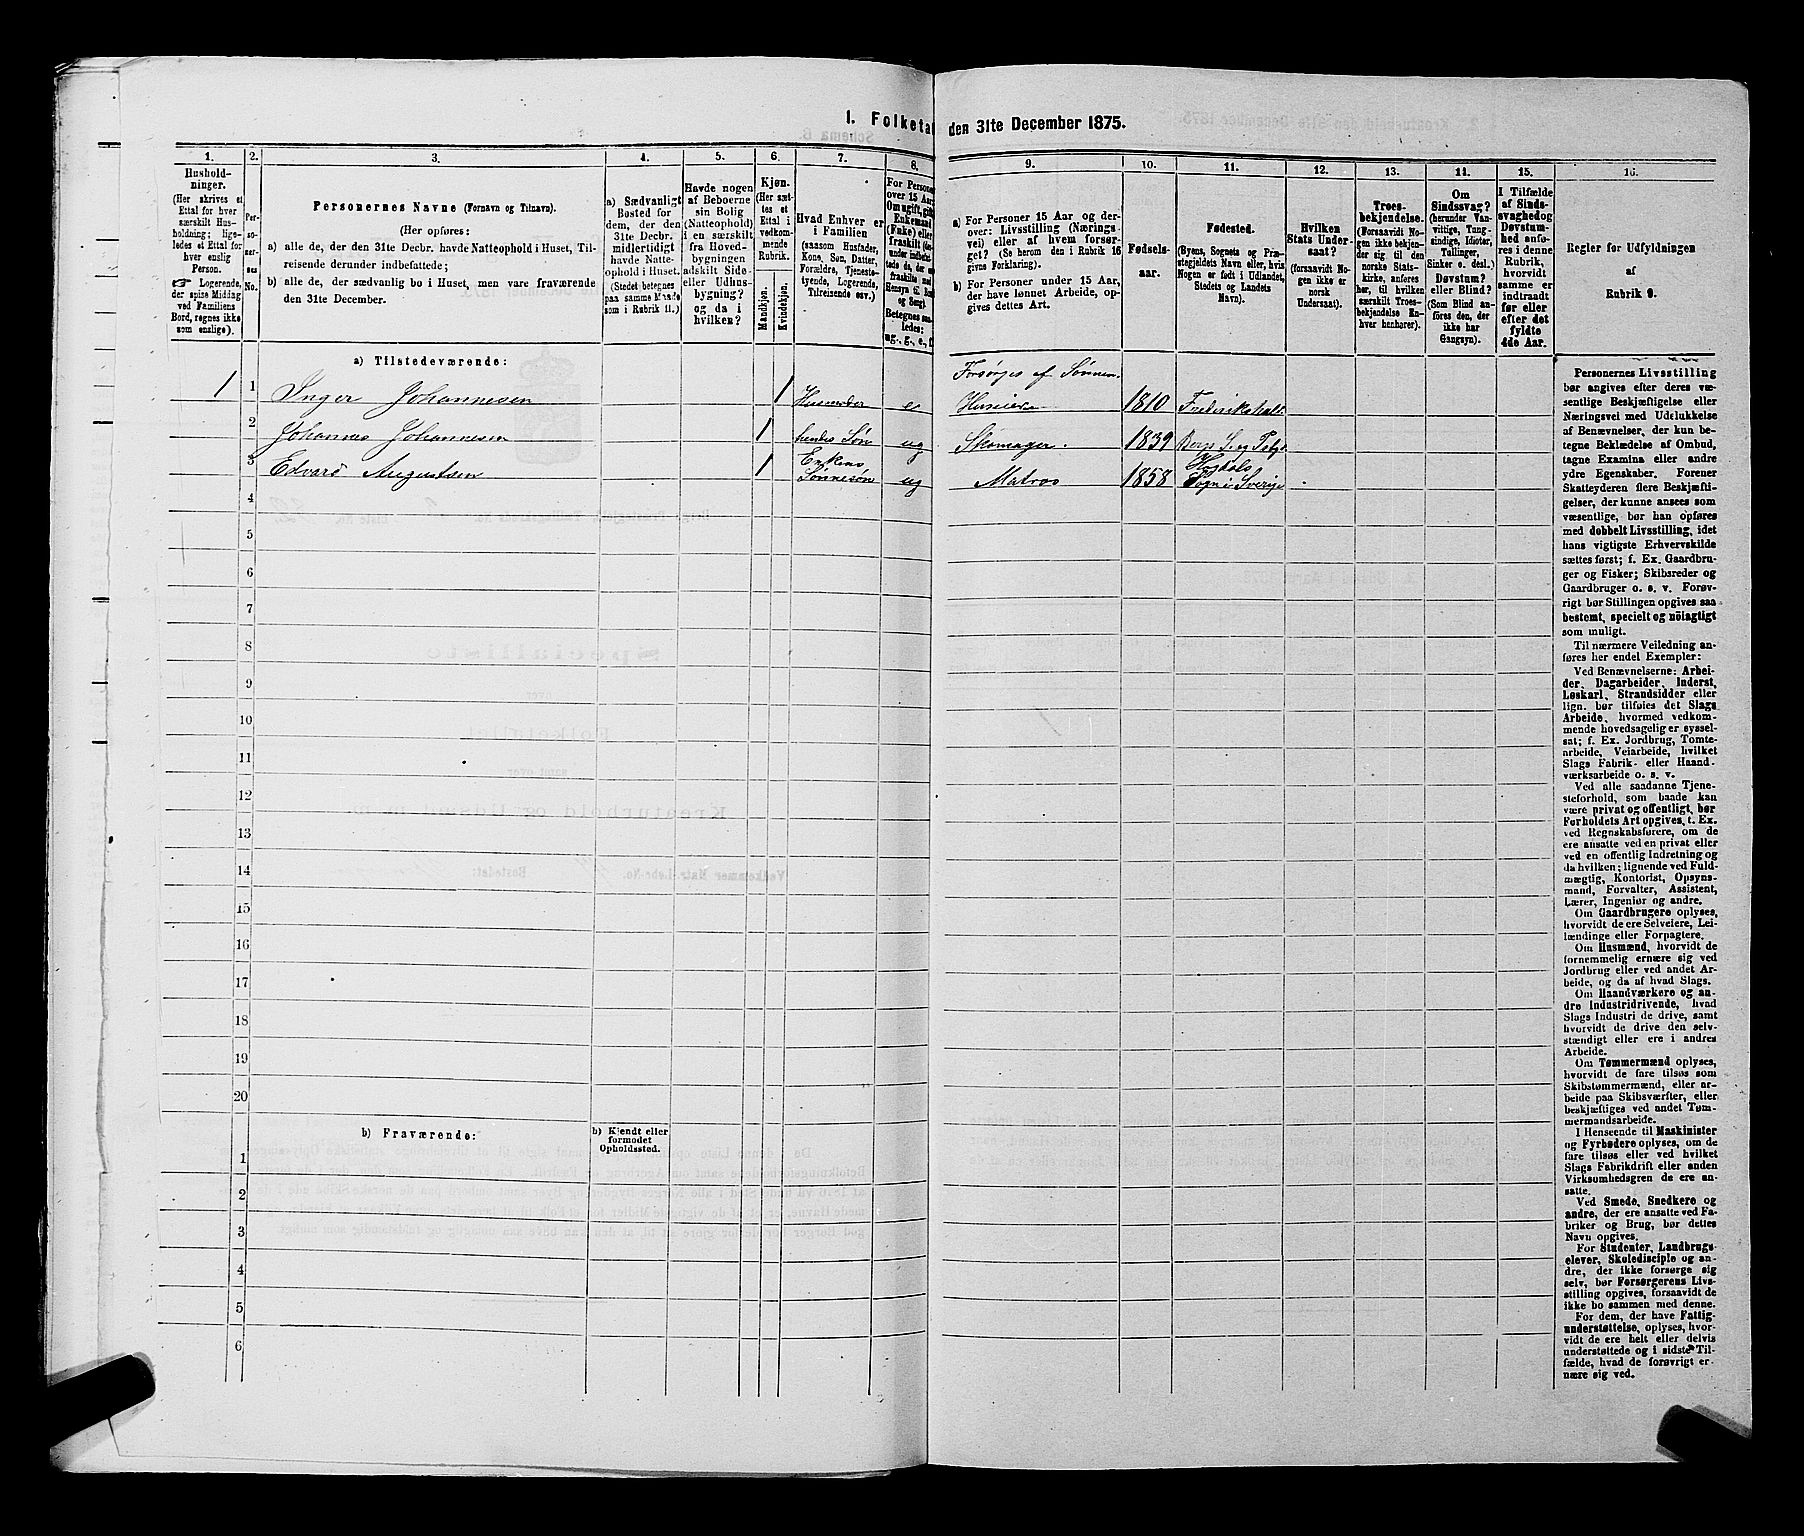 1. Folketæ
den 31te December 1875.
1.
2.
3.
4.
5.
6.
7.
8.
9.
10.
11.
12.
13.
14.
15.
16.
Hushold-
ninger.
(Her skrives et
Ettal for hver
særskilt Hus-
holdning; lige-
ledes et Ettal for
hver enslig
Person.
☞ Logerende,
der spise Middag
ved Familiens
Bord, regnes ikke
som enslige).
Per-
so-
ner-
nes
No.
Personernes Navne (Fornavn og Tilnavn).
(Her opføres:
a) alle de, der den 31te Decbr. havde Natteophold i Huset, Til-
reisende derunder indbefattede;
b) alle de, der sædvanlig bo i Huset, men vare fraværende
den 31te December.
a) Sædvanligt
Bosted for
dem, der den
31te Decbr.
midlertidigt
havde Natte-
ophold i Huset.
(Stedet betegnes
paa samme Maade
som i Rubrik 11.)
Havde nogen
af Beboerne
sin Bolig
(Natteophold)
i en særskilt
fra Hoved-
bygningen
adskilt Side-
eller Udhus-
bygning?
og da i
hvilken?
Kjøn.
(Her sæt-
tes et
Ettal i
vedkom-
mende
Rubrik.
Mandkjøn.
Kvindekjøn.
Hvad Enhver er
i Familien
(saasom Husfader,
Kone, Søn, Datter,
Forældre, Tjeneste-
tyende, Logerende,
Tilreisende osv.)
For Personer
over 15 Aar:
Om ugift, gift,
Enkemand
(Enke) eller
fraskilt
Betegnes saa-
ledes:
ug., g., e., f.
a) For Personer 15 Aar og der-
over: Livsstilling (Nærings-
vei) eller af hvem forsør-
get? (Se herom den i Rubrik 16
givne Forklaring).
b) For Personer under 15 Aar,
der have lønnet Arbeide, op-
gives dettes Art.
Fødsels-
aar.
Fødested.
(Byens, Sognets og Præ-
stegjeldets Navn eller, hvis
Nogen er født i Udlandet,
Stedets og Landets
Navn).
Hvilken
Stats Under-
saat?
(forsaavidt No-
gen ikke er
norsk
Undersaat).
Troes-
bekjendelse.
(Forsaavidt No-
gen ikke bekjen-
der sig til den
norske Stats-
kirke, anføres
her, til hvilken
særskilt Troes-
bekjendelse En-
hver henhører).
Om
Sindssvag?
(herunder Van-
vittige, Tung-
sindige, Idioter,
Tullinger,
Sinker o. desl.)
Døvstum?
eller Blind?
(Som Blind an-
føres den, der
ikke har
Gangsyn).
I Tilfælde
af Sinds-
svaghed og
Døvstum-
hed anfø-
res i denne
Rubrik,
hvorvidt
samme er
indtraadt
før eller
efter det
fyldte
4de Aar.
Regler for Udfyldningen
af
Rubrik 9.
a) Tilstedeværende:
Forsørges af Sønnen.
1 1 Inger Johannesen 1 Husmoder e 1810 Frederikshald
2 Johannes Johannesen 1 hendes Søn ug Skomager. 1839
3 Edvard Augustsen 1 Enkens Sønnesøn ug Matros 1858 Sogn i Sverige
4
5
6
7
8
9
10
11
12
13
14
15
16
17
18
19
20
b) Fraværende:
b) Kjendt eller
formodet
Opholdssted.
1
2
3
4
5
6
Personernes Livsstilling
bør angives efter deres væ-
sentlige Beskjæftigelse eller
Næringsvei med Udelukkelse
af Benævnelser, der kun be-
tegne Beklædelse af Ombud,
tagne Examina eller andre
ydre Egenskaber. Forener
Skatteyderen flere Beskjæfti-
gelser, der kunne ansees som
væsentlige, bør han opføres
med dobbelt Livsstilling, idet
hans vigtigste Erhvervskilde
sættes først; f. Ex. Gaardbru-
ger og Fisker; Skibsreder og
Gaardbruger o. s. v. Forøv-
rigt bør Stillingen opgives saa
bestemt, specielt og nöiagtigt
som muligt.
Til nærmere Veiledning an-
føres her endel Exempler:
Ved Benævnelserne: Arbei-
der, Dagarbeider, Inderst,
Løskarl, Strandsidder eller
lign. bør tilføies det Slags
Arbeide, hvormed vedkom-
mende hovedsagelig er syssel-
sat; f. Ex. Jordbrug, Tomte-
arbeide, Veiarbeide, hvilket
Slags Fabrik- eller Haand-
værksarbeide o. s. v.
Ved alle saadanne Tjene-
steforhold, som baade kan
være privat og offentligt, bør
Forholdets Art opgives, t. Ex.
ved Regnskabsførere, om de
ere ansatte ved en privat eller
ved en offentlig Indretning og
da hvilken; lignende ved Fuld-
mægtig, Kontorist, Opsyns-
mand, Forvalter, Assistent,
Lærer, Ingeniør og andre.
Om Gaardbrugere oplyses,
hvorvidt de ere Selveiere, Lei-
lændinge eller Forpagtere.
Om Husmænd, hvorvidt de
fornemmelig ernære sig ved
Jordbrug eller ved andet Ar-
beide, og da af hvad Slags.
Om Haandværkere og an-
dre Industridrivende, hvad
Slags Industri de drive, samt
hvorvidt de drive den selv-
stændigt eller ere i andres
Arbeide.
Om Tømmermænd oplyses,
hvorvidt de fare tilsøs som
Skibstømmermænd, eller ar-
beide paa Skibsværfter, eller
beskjæftiges ved andet Tøm-
mermandsarbeide.
I Henseende til Maskinister
og Fyrbødere oplyses, om de
fare tilsøs eller ved hvilket
Slags Fabrikdrift eller anden
Virksomhedsgren de ere an-
satte.
Ved Smede, Snedkere og
andre, der ere ansatte ved Fa-
briker og Brug, bør dettes
Navn opgives.
For Studenter, Landbrugs-
elever, Skoledisciple og an-
dre, der ikke forsørge sig
selv, bør Forsørgerens Livs-
stilling opgives, forsaavidt de
ikke bo sammen med denne.
For dem, der have Fattig-
understøttelse, oplyses, hvor-
vidt de ere helt eller delvis
understøttede og i sidste Til-
fælde, hvad de forøvrigt er-
nære sig ved.